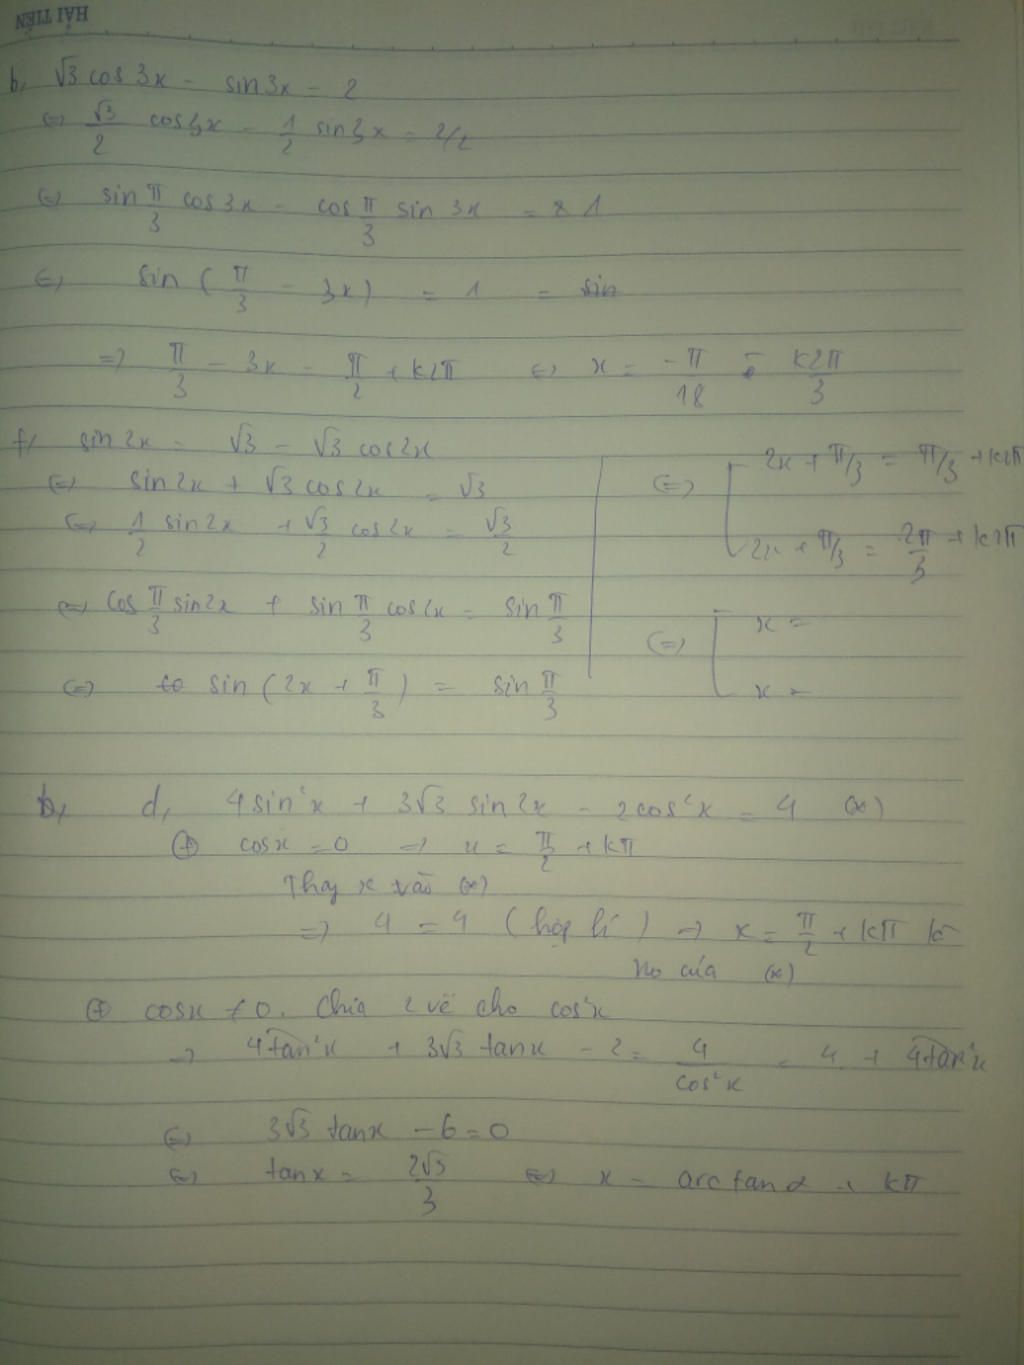 HẢI TIẾN
b, √3 cos 3x - sin 3x = 2
⇔ √3/2 cos 3x - 1/2 sin 3x = 2/2
⇔ sin π/3 cos 3x - cos π/3 sin 3x = 1
⇔ sin ( π/3 - 3x ) = 1 = sin
⇒ π/3 - 3x = π/2 + k2π ⇔ x = -π/18 - k2π/3
f, sin 2x = √3 - √3 cos 2x
⇔ sin 2x + √3 cos 2x = √3
⇔ 1/2 sin 2x + √3/2 cos 2x = √3/2
⇔ cos π/3 sin 2x + sin π/3 cos 2x = sin π/3
⇔ sin ( 2x + π/3 ) = sin π/3
⇔ 2x + π/3 = π/3 + k2π
2x + π/3 = 2π/3 + k2π
⇔ x =
x =
b, d, 4 sin²x + 3√3 sin 2x - 2cos²x = 4 (*)
⊕ cosx = 0 ⇒ x = π/2 + kπ
Thay x vào (*)
⇒ 4 = 4 (hợp lí) ⇒ x = π/2 + kπ là
no của (*)
⊕ cosx ≠ 0. Chia 2 vế cho cos²x
⇒ 4tan²x + 3√3 tanx - 2 = 4/cos²x = 4 + 4tan²x
⇔ 3√3 tanx - 6 = 0
⇔ tanx = 2√3/3 ⇔ x = arctan α + kπ